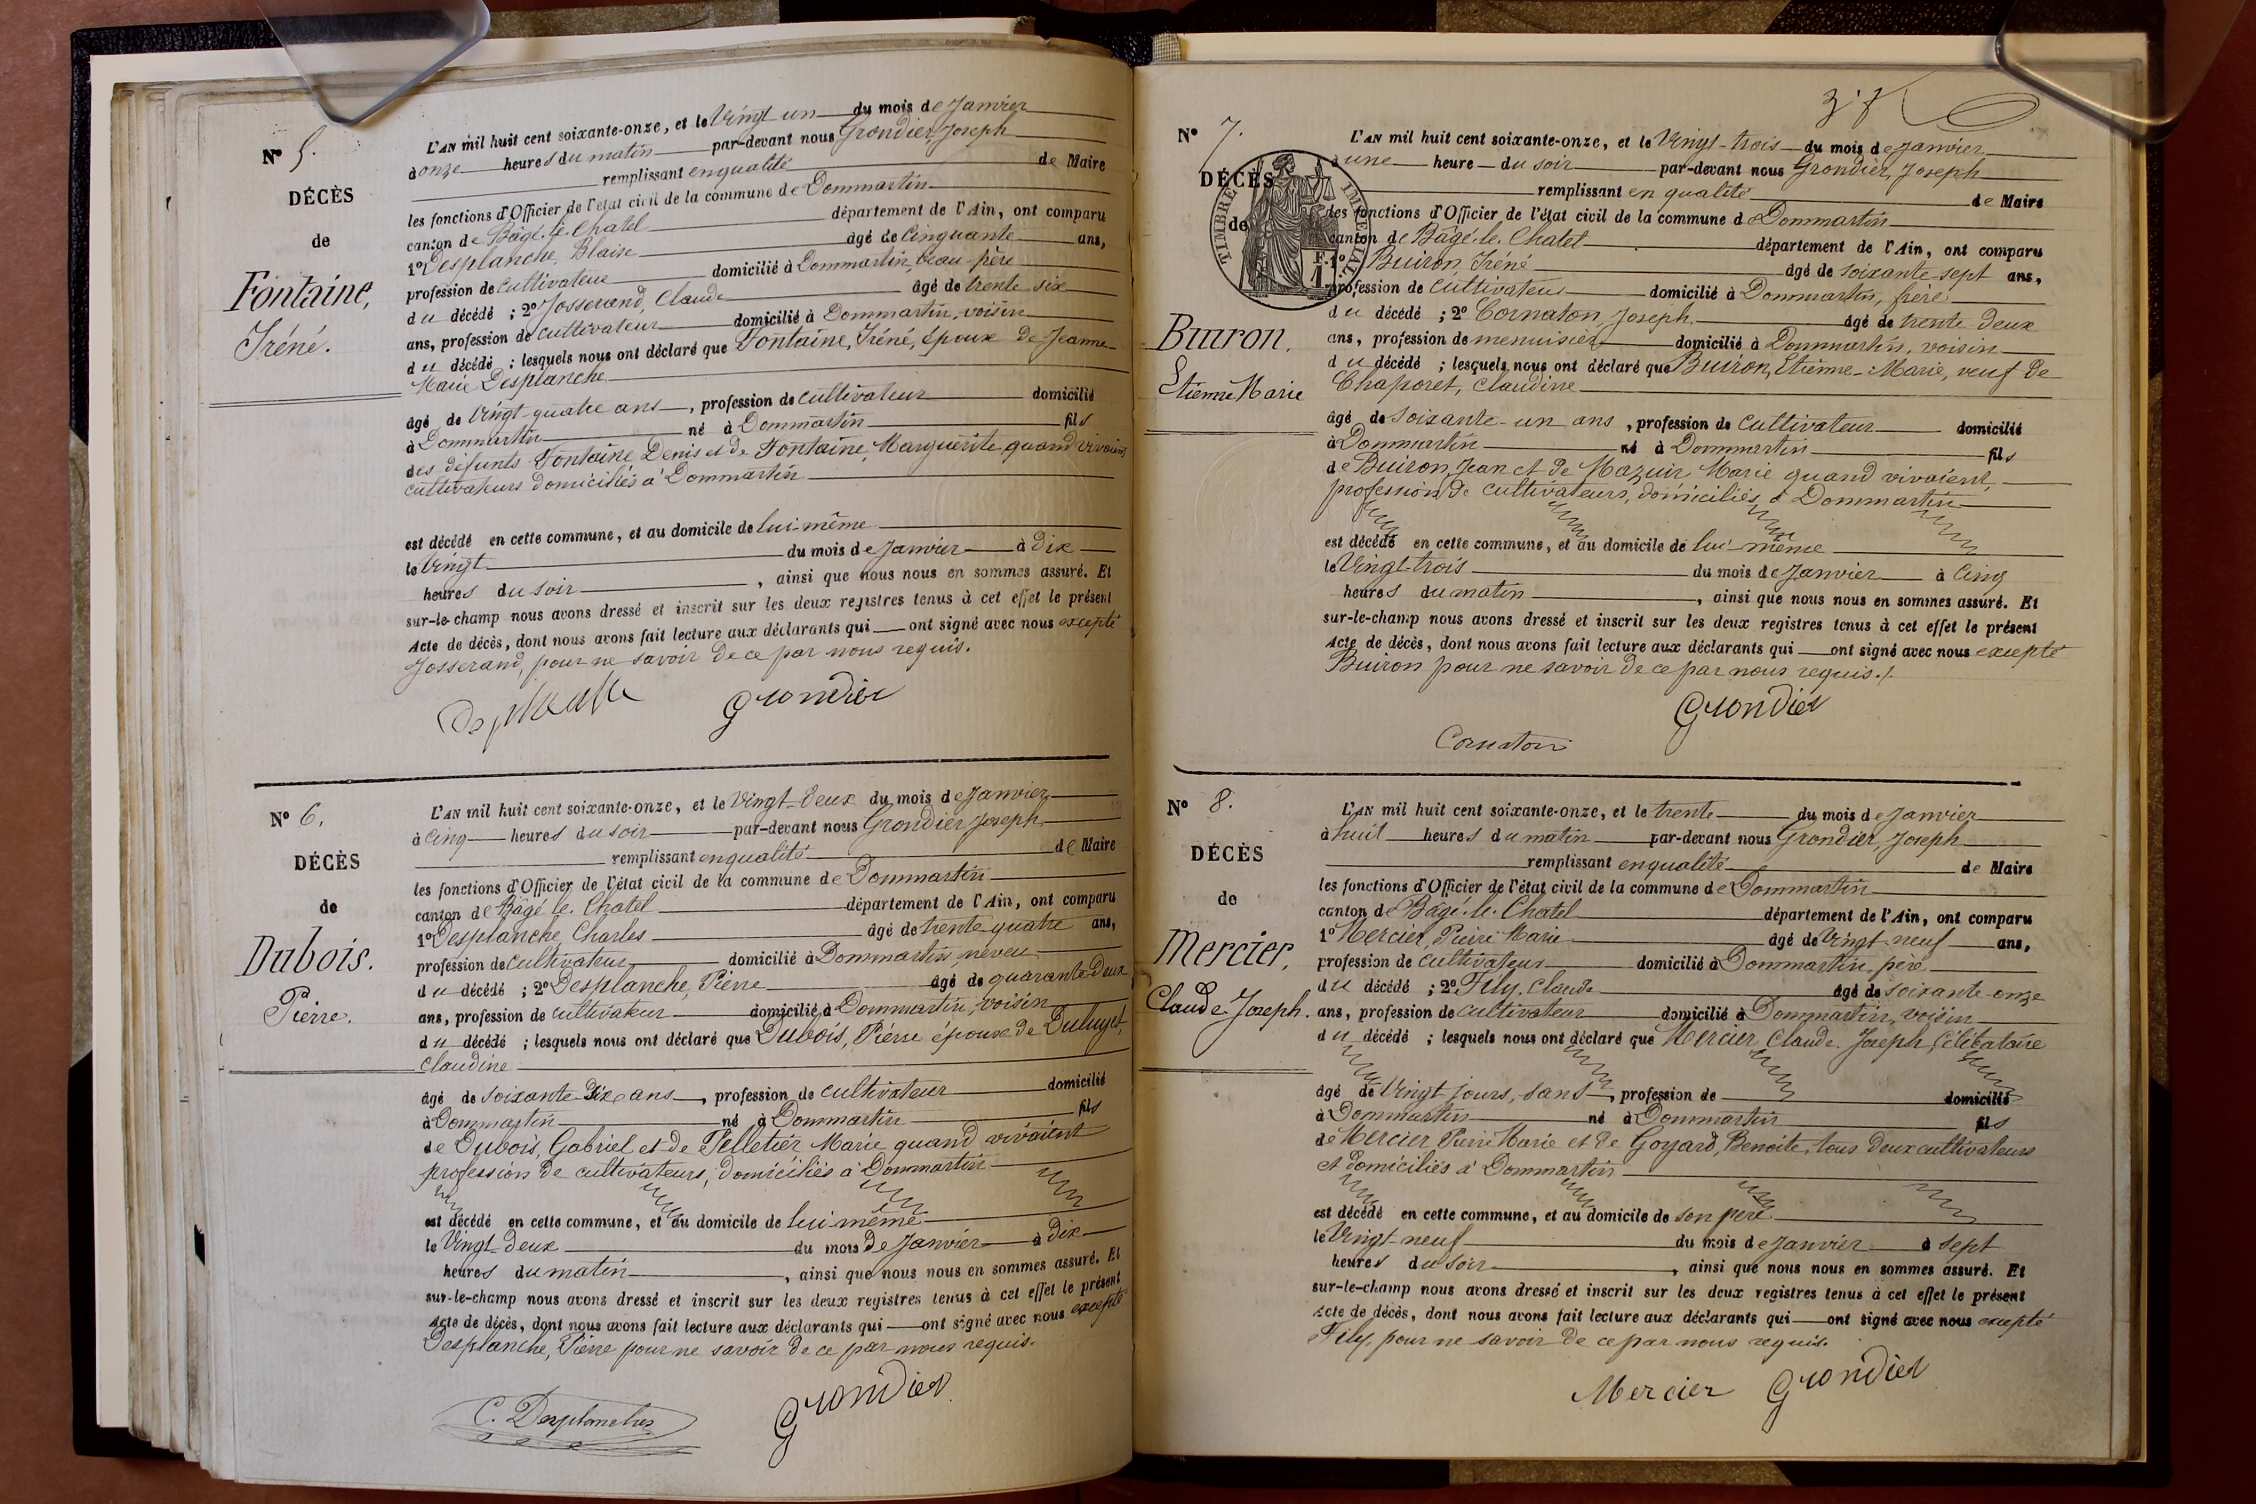 N° 5.
DÉCÈS
de
Fontaine,
Iréné.
L'AN mil huit cent soixante-onze, et le Vingt un du mois de Janvier
à onze heures du matin par-devant nous Grondier, Joseph
remplissant en qualité de Maire
les fonctions d'Officier de l'état civil de la commune de Dommartin
canton de Bâgé-le-Chatel département de l'Ain, ont comparu
1° Desplanche, Blaise âgé de Cinquante ans,
profession de cultivateur domicilié à Dommartin, beau-père
du décédé ; 2° Josserand, Claude âgé de trente six
ans, profession de cultivateur domicilié à Dommartin, voisin
du décédé ; lesquels nous ont déclaré que Fontaine, Iréné, époux de Jeanne
Marie Desplanche
âgé de vingt-quatre ans, profession de cultivateur domicilié
à Dommartin né à Dommartin fils
des défunts Fontaine, Denis et de Fontaine, Marguerite quand vivaient
cultivateurs domiciliés à Dommartin
est décédé en cette commune, et au domicile de lui-même
le Vingt du mois de Janvier à dix
heures du soir, ainsi que nous nous en sommes assuré. Et
sur-le-champ nous avons dressé et inscrit sur les deux registres tenus à cet effet le présent
Acte de décès, dont nous avons fait lecture aux déclarants qui ont signé avec nous excepté
Josserand, pour ne savoir de ce par nous requis.
Desplanche Grondier
N° 6.
DÉCÈS
de
Dubois.
Pierre.
L'AN mil huit cent soixante-onze, et le Vingt-deux du mois de Janvier
à Cinq heures du soir par-devant nous Grondier Joseph
remplissant en qualité de Maire
les fonctions d'Officier de l'état civil de la commune de Dommartin
canton de Bâgé le-Chatel département de l'Ain, ont comparu
1° Desplanche, Charles âgé de trente-quatre ans,
profession de cultivateur domicilié à Dommartin neveu
du décédé ; 2° Desplanche, Pierre âgé de quarante-deux
ans, profession de cultivateur domicilié à Dommartin, voisin
du décédé ; lesquels nous ont déclaré que Dubois, Pierre époux de
Claudine
âgé de soixante-dix ans, profession de cultivateur domicilié
à Dommartin né à Dommartin fils
de Dubois, Gabriel et de Pelletier Marie quand vivaient
profession de cultivateurs, domiciliés à Dommartin
est décédé en cette commune, et au domicile de lui-même
le Vingt-deux du mois de Janvier à dix
heures du matin, ainsi que nous nous en sommes assuré. Et
sur-le-champ nous avons dressé et inscrit sur les deux registres tenus à cet effet le présent
Acte de décès, dont nous avons fait lecture aux déclarants qui ont signé avec nous excepté
Desplanche, Pierre pour ne savoir de ce par nous requis.
C. Desplanches Grondier
N° 7.
DÉCÈS
de
TIMBRE IMPÉRIAL
Buiron.
Etienne Marie
L'AN mil huit cent soixante-onze, et le Vingt-trois du mois de Janvier
à une heure du soir par-devant nous Grondier, Joseph
remplissant en qualité de Maire
les fonctions d'Officier de l'état civil de la commune de Dommartin
canton de Bâgé-le-Chatel département de l'Ain, ont comparu
1° Buiron, Iréné âgé de soixante-sept ans,
profession de cultivateur domicilié à Dommartin, frère
du décédé ; 2° Cornaton, Joseph âgé de trente-deux
ans, profession de menuisier domicilié à Dommartin, voisin
du décédé ; lesquels nous ont déclaré que Buiron, Etienne-Marie, veuf de
Chaporet, Claudine
âgé de soixante-un ans, profession de cultivateur domicilié
à Dommartin né à Dommartin fils
de Buiron, Jean et de Mazuir Marie quand vivaient,
profession de cultivateurs, domiciliés à Dommartin
est décédé en cette commune, et au domicile de lui-même
le Vingt-trois du mois de Janvier à Cinq
heures du matin, ainsi que nous nous en sommes assuré. Et
sur-le-champ nous avons dressé et inscrit sur les deux registres tenus à cet effet le présent
Acte de décès, dont nous avons fait lecture aux déclarants qui ont signé avec nous excepté
Buiron pour ne savoir de ce par nous requis./.
Grondier
Cornaton
N° 8.
DÉCÈS
de
Mercier,
Claude-Joseph.
L'AN mil huit cent soixante-onze, et le trente du mois de Janvier
à huit heures du matin par-devant nous Grondier, Joseph
remplissant en qualité de Maire
les fonctions d'Officier de l'état civil de la commune de Dommartin
canton de Bâgé-le-Chatel département de l'Ain, ont comparu
1° Mercier, Pierre Marie âgé de Vingt-neuf ans,
profession de cultivateur domicilié à Dommartin, père
du décédé ; 2° Fily, Claude âgé de soixante-onze
ans, profession de cultivateur domicilié à Dommartin, voisin
du décédé ; lesquels nous ont déclaré que Mercier, Claude-Joseph, célibataire
âgé de Vingt jours, sans, profession de domicilié
à Dommartin né à Dommartin fils
de Mercier Pierre Marie et de Goyard, Benoite, tous deux cultivateurs
et domiciliés à Dommartin
est décédé en cette commune, et au domicile de son père
le Vingt-neuf du mois de Janvier à sept
heures du soir, ainsi que nous nous en sommes assuré. Et
sur-le-champ nous avons dressé et inscrit sur les deux registres tenus à cet effet le présent
Acte de décès, dont nous avons fait lecture aux déclarants qui ont signé avec nous excepté
Fily, pour ne savoir de ce par nous requis.
Mercier Grondier